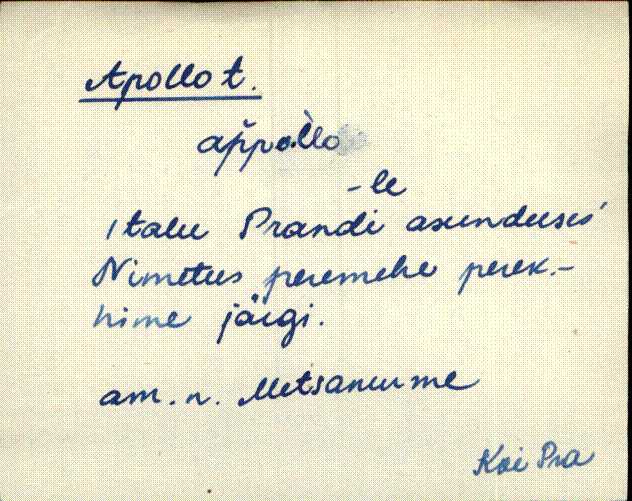 Apollo t.
appo·llo
-le
1 talu Prandi asunduses
Nimetus peremehe perek.-
nime järgi.
am. n. Metsanurme
Koi Pra